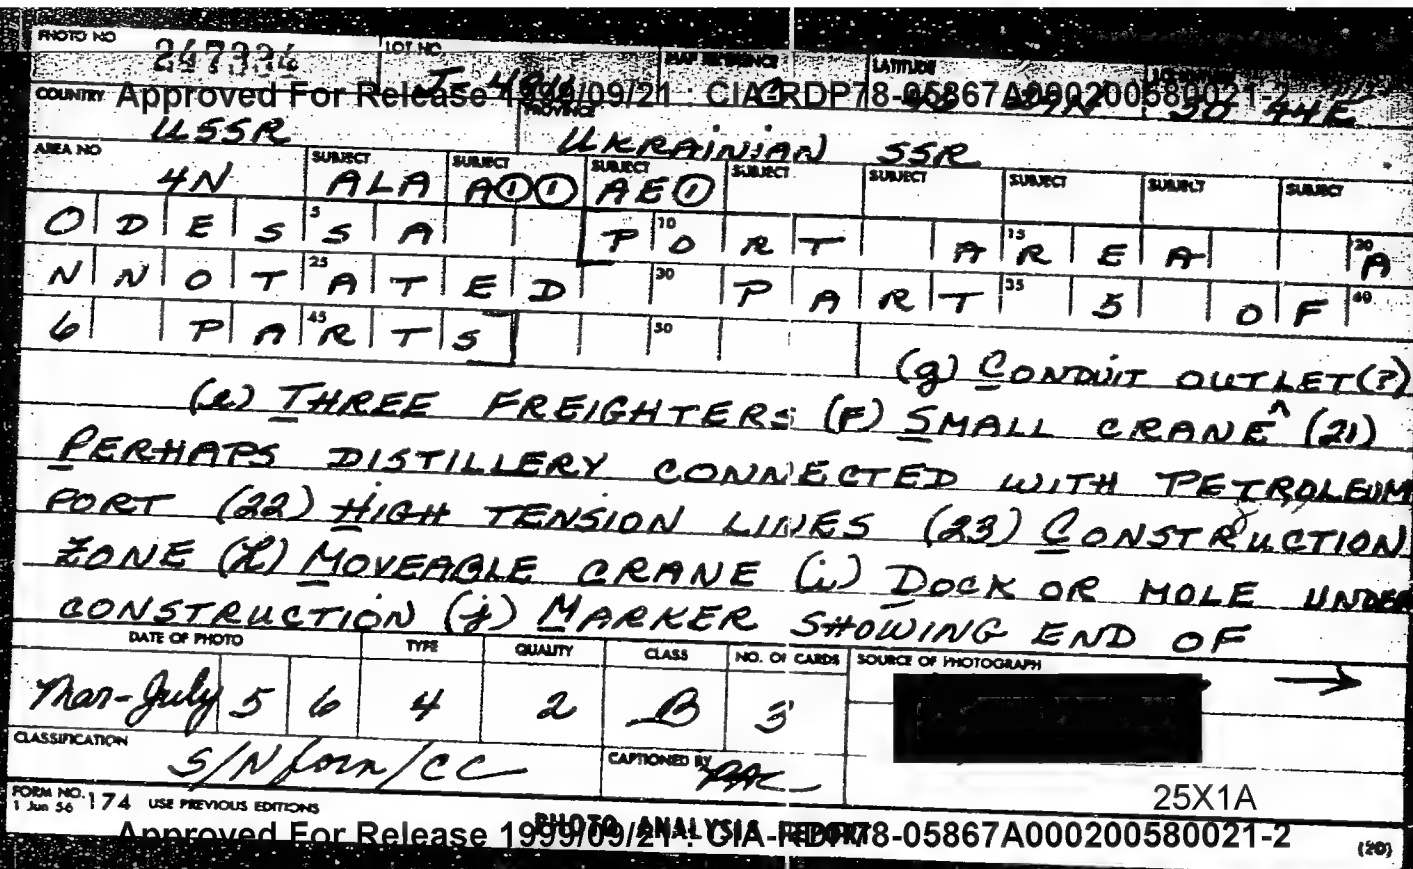 PHOTO NO 247394 LOT NO MAP REFERENCE LATITUDE LONGITUDE
COUNTRY Approved For Release 1999/09/21 : CIA-RDP78-05867A000200580021-2
30 44E
USSR PROVINCE UKRAINIAN SSR
AREA NO SUBJECT SUBJECT SUBJECT SUBJECT SUBJECT SUBJECT SUBJECT SUBJECT
4N ALA A11 AE1
ODESSA PORT AREA A
NNOTATED PART 5 OF
6 PARTS
(g) CONDUIT OUTLET(?)
(e) THREE FREIGHTERS (F) SMALL CRANE ^ (21)
PERHAPS DISTILLERY CONNECTED WITH PETROLEUM
PORT (22) HIGH TENSION LINES (23) CONSTRUCTION
ZONE (h) MOVEABLE CRANE (i) DOCK OR MOLE UNDER
CONSTRUCTION (j) MARKER SHOWING END OF
DATE OF PHOTO TYPE QUALITY CLASS NO. OF CARDS SOURCE OF PHOTOGRAPH
Mar-July 56 4 2 B 3 →
CLASSIFICATION S/Noforn/CC CAPTIONED BY
25X1A
FORM NO. 174 USE PREVIOUS EDITIONS
1 Jun 56
PHOTO ANALYSIS REPORT
Approved For Release 1999/09/21 : CIA-RDP78-05867A000200580021-2
(20)